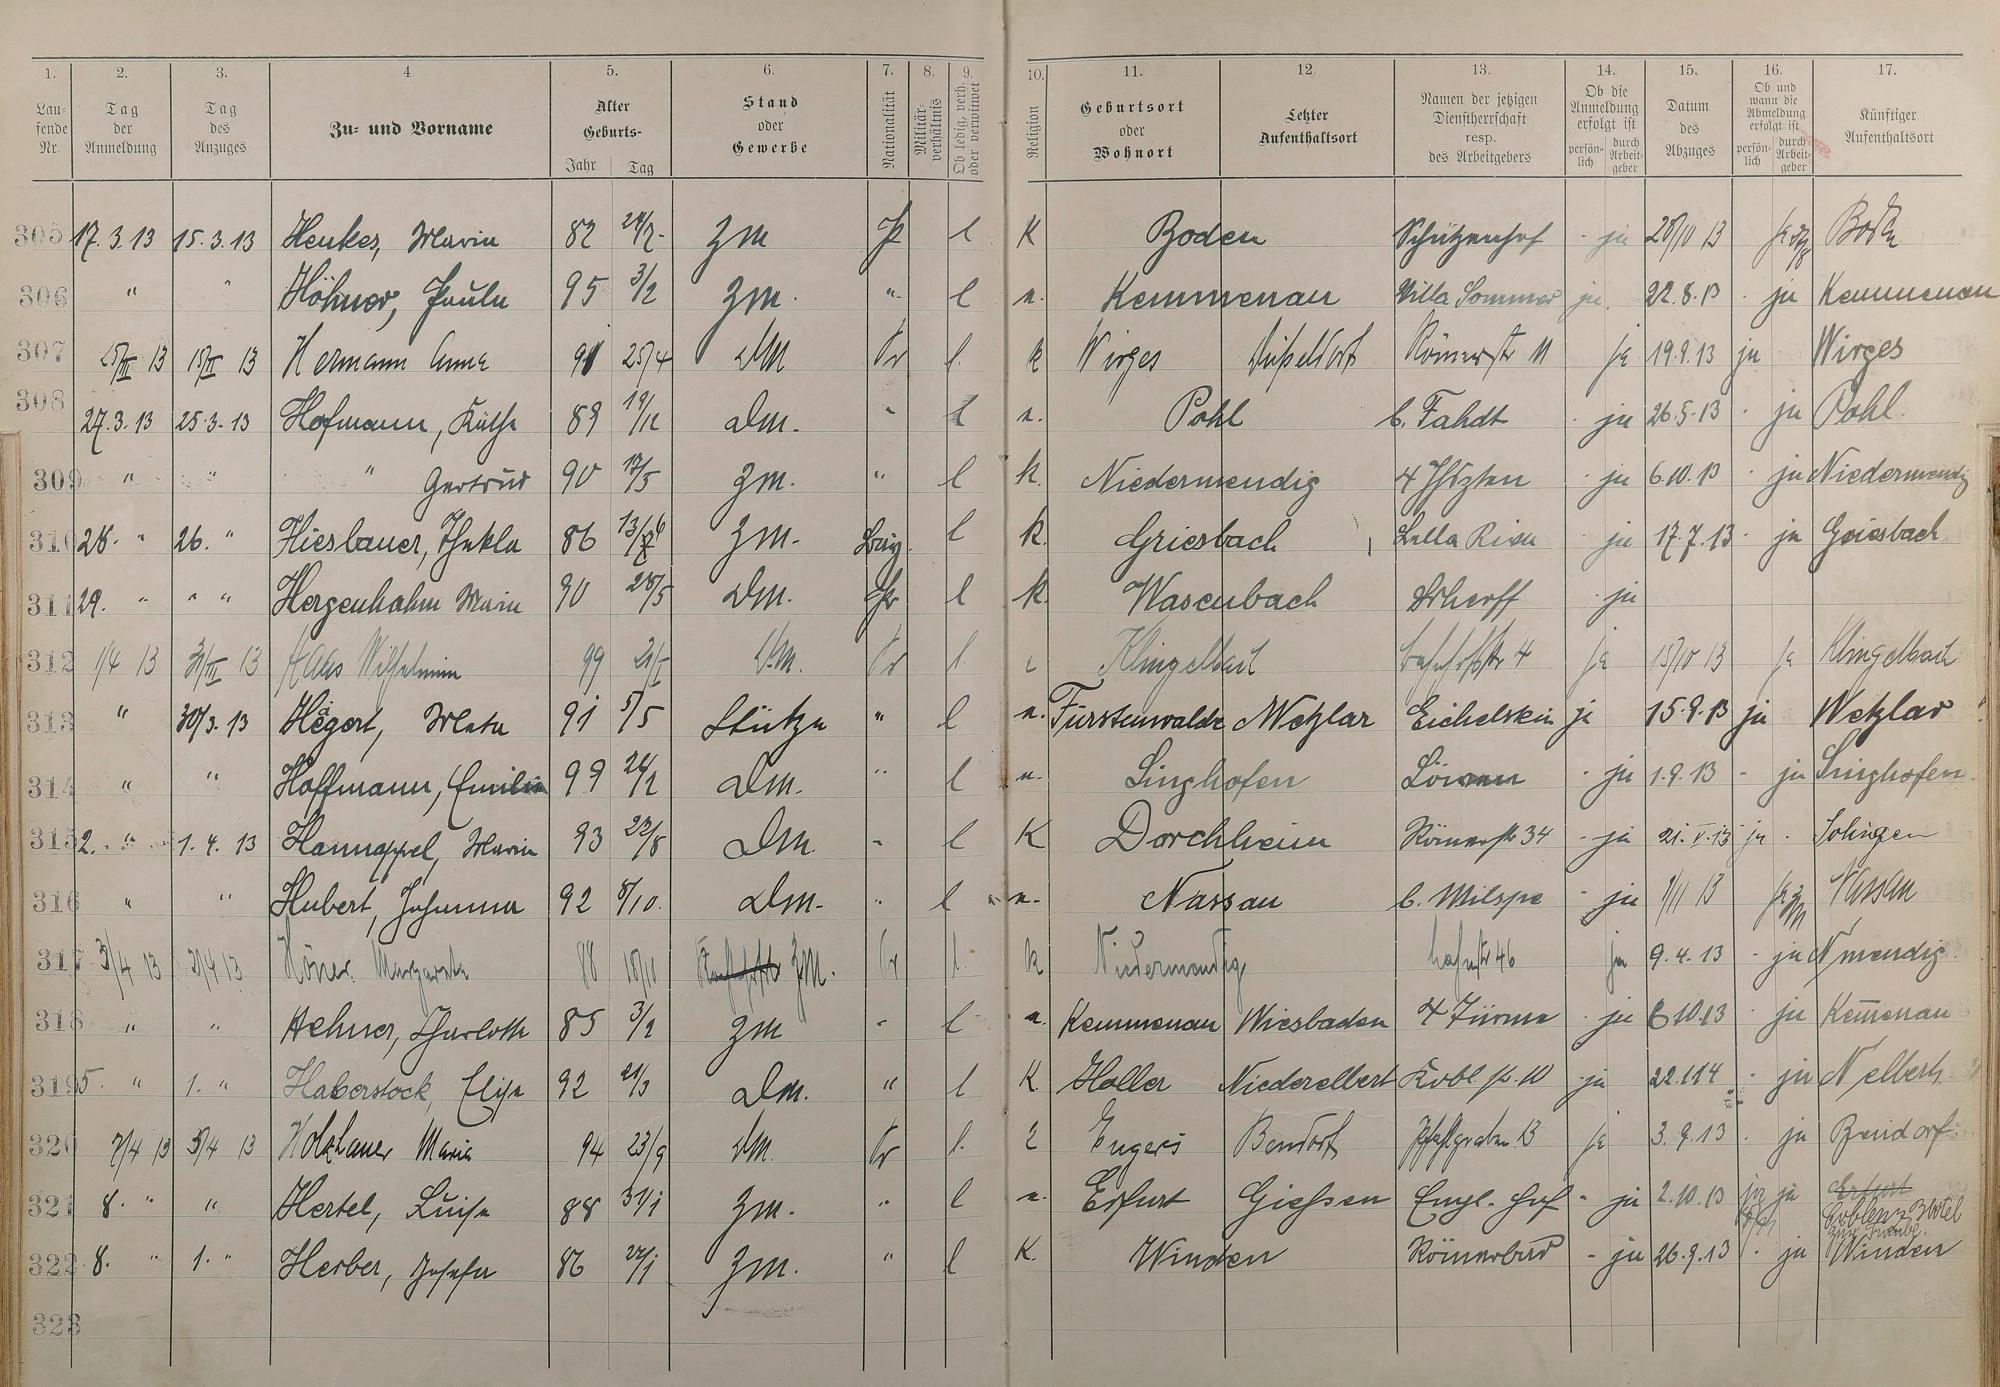 1. 2. 3. 4 5. 6. 7. 8. 9. 10. 11. 12. 13. 14. 15. 16. 17.
Laufende Nr. Tag der Anmeldung Tag des Anzuges Zu- und Vorname Alter Geburts- Jahr Tag Stand oder Gewerbe Nationalität Militärverhältnis Ob ledig, verh. oder verwitwet Religion Geburtsort oder Wohnort Letzter Aufenthaltsort Namen der jetzigen Dienstherrschaft resp. des Arbeitgebers Ob die Anmeldung erfolgt ist persönlich durch Arbeitgeber Datum des Abzuges Ob und wann die Abmeldung erfolgt ist persönlich durch Arbeitgeber Künftiger Aufenthaltsort
305 17. 3. 13 15. 3. 13 Henkes, Maria 82 Zm l K Boden Schützenhof - ja 28/10 13
306 " " Höhner, Paula 95 3/2 Zm. " l e. Kemmenau Villa Sommer ja. 22. 8. 13 - ja Kemmenau
307 15/III 13 Hermann Anna 91 25/4 DM Pr l. k Wirges Düsseldorf Römerstr 11 ja 19.9.13 ja Wirges
308 27. 3. 13 25. 3. 13 Hofmann, Käthe 89 19/12 Dm. " l e. Pohl b. Fahdt - ja 26.5.13 - ja Pohl.
309 " " " Gertrud 90 17/5 Zm. " l k. Niedermendig 4 - ja 6.10.13 - ja Niedermendig
310 28. " 26. " Hiesbauer, Thekla 86 Zm. Bay. l k. Griesbach - ja 17.7.13 - ja Griesbach
311 29. " " " Hergenhahn Maria 90 28/5 Dm. Pr l k. Wasenbach - ja
312 1/4 13 31/III 13 Haas Wilhelmine 99 DM. Pr l. Klingelbach Bahnhofstr 4 ja 15/10 13 ja Klingelbach
313 " 30/3. 13 Hägert, Meta 91 5/5 Stütze " l e. Fürstenwalde Wetzlar Eichelstein ja 15.9.13 ja Wetzlar
314 " " Hoffmann, Emilie 99 24/2 Dm. " l e. Singhofen Löwen - ja 1.9.13 - ja Singhofen
315 2. " 1. 4. 13 Hannappel, Maria 93 22/8 Dm. " l K Dorchheim Römerstr 34 - ja 21. V. 13 ja .
316 " " Hubert, Johanna 92 8/10. Dm. " l e. Nassau b. Milspe - ja 1/11 13 Nassau
317 3/4 13 Höner Margareta 88 18/11 ZM. Pr l. k Niedermendig Bahnstr 46 ja 9.4.13 - ja N mendig
318 " " Hehner, Charlotte 85 3/2 Zm " l e. Kemmenau Wiesbaden 4 Türme - ja 6 10.13 - ja Kemenau
319 5. " 1. " Haberstock, Elise 92 21/3 Dm. " l K. Holler Niederelbert Kobl str. 10 - ja 22.1 14 - ja N elbert
320 7/4 13 13 Holzhauer Maria 94 23/9 DM Pr l. Engers Bendorf 13 ja 3.9.13 - ja Bendorf
321 8. " " Hertel, Luise 88 31/1 Zm. " l e. Erfurt Giessen Engl. Hof - ja 2.10.13 ja ja Erfurt
Coblenz Hotel
322 8. " 1. " Herber, Josefa 86 22/1 Zm. " l K. Winden Römerbad - ja 26.9.13 - ja Winden
323